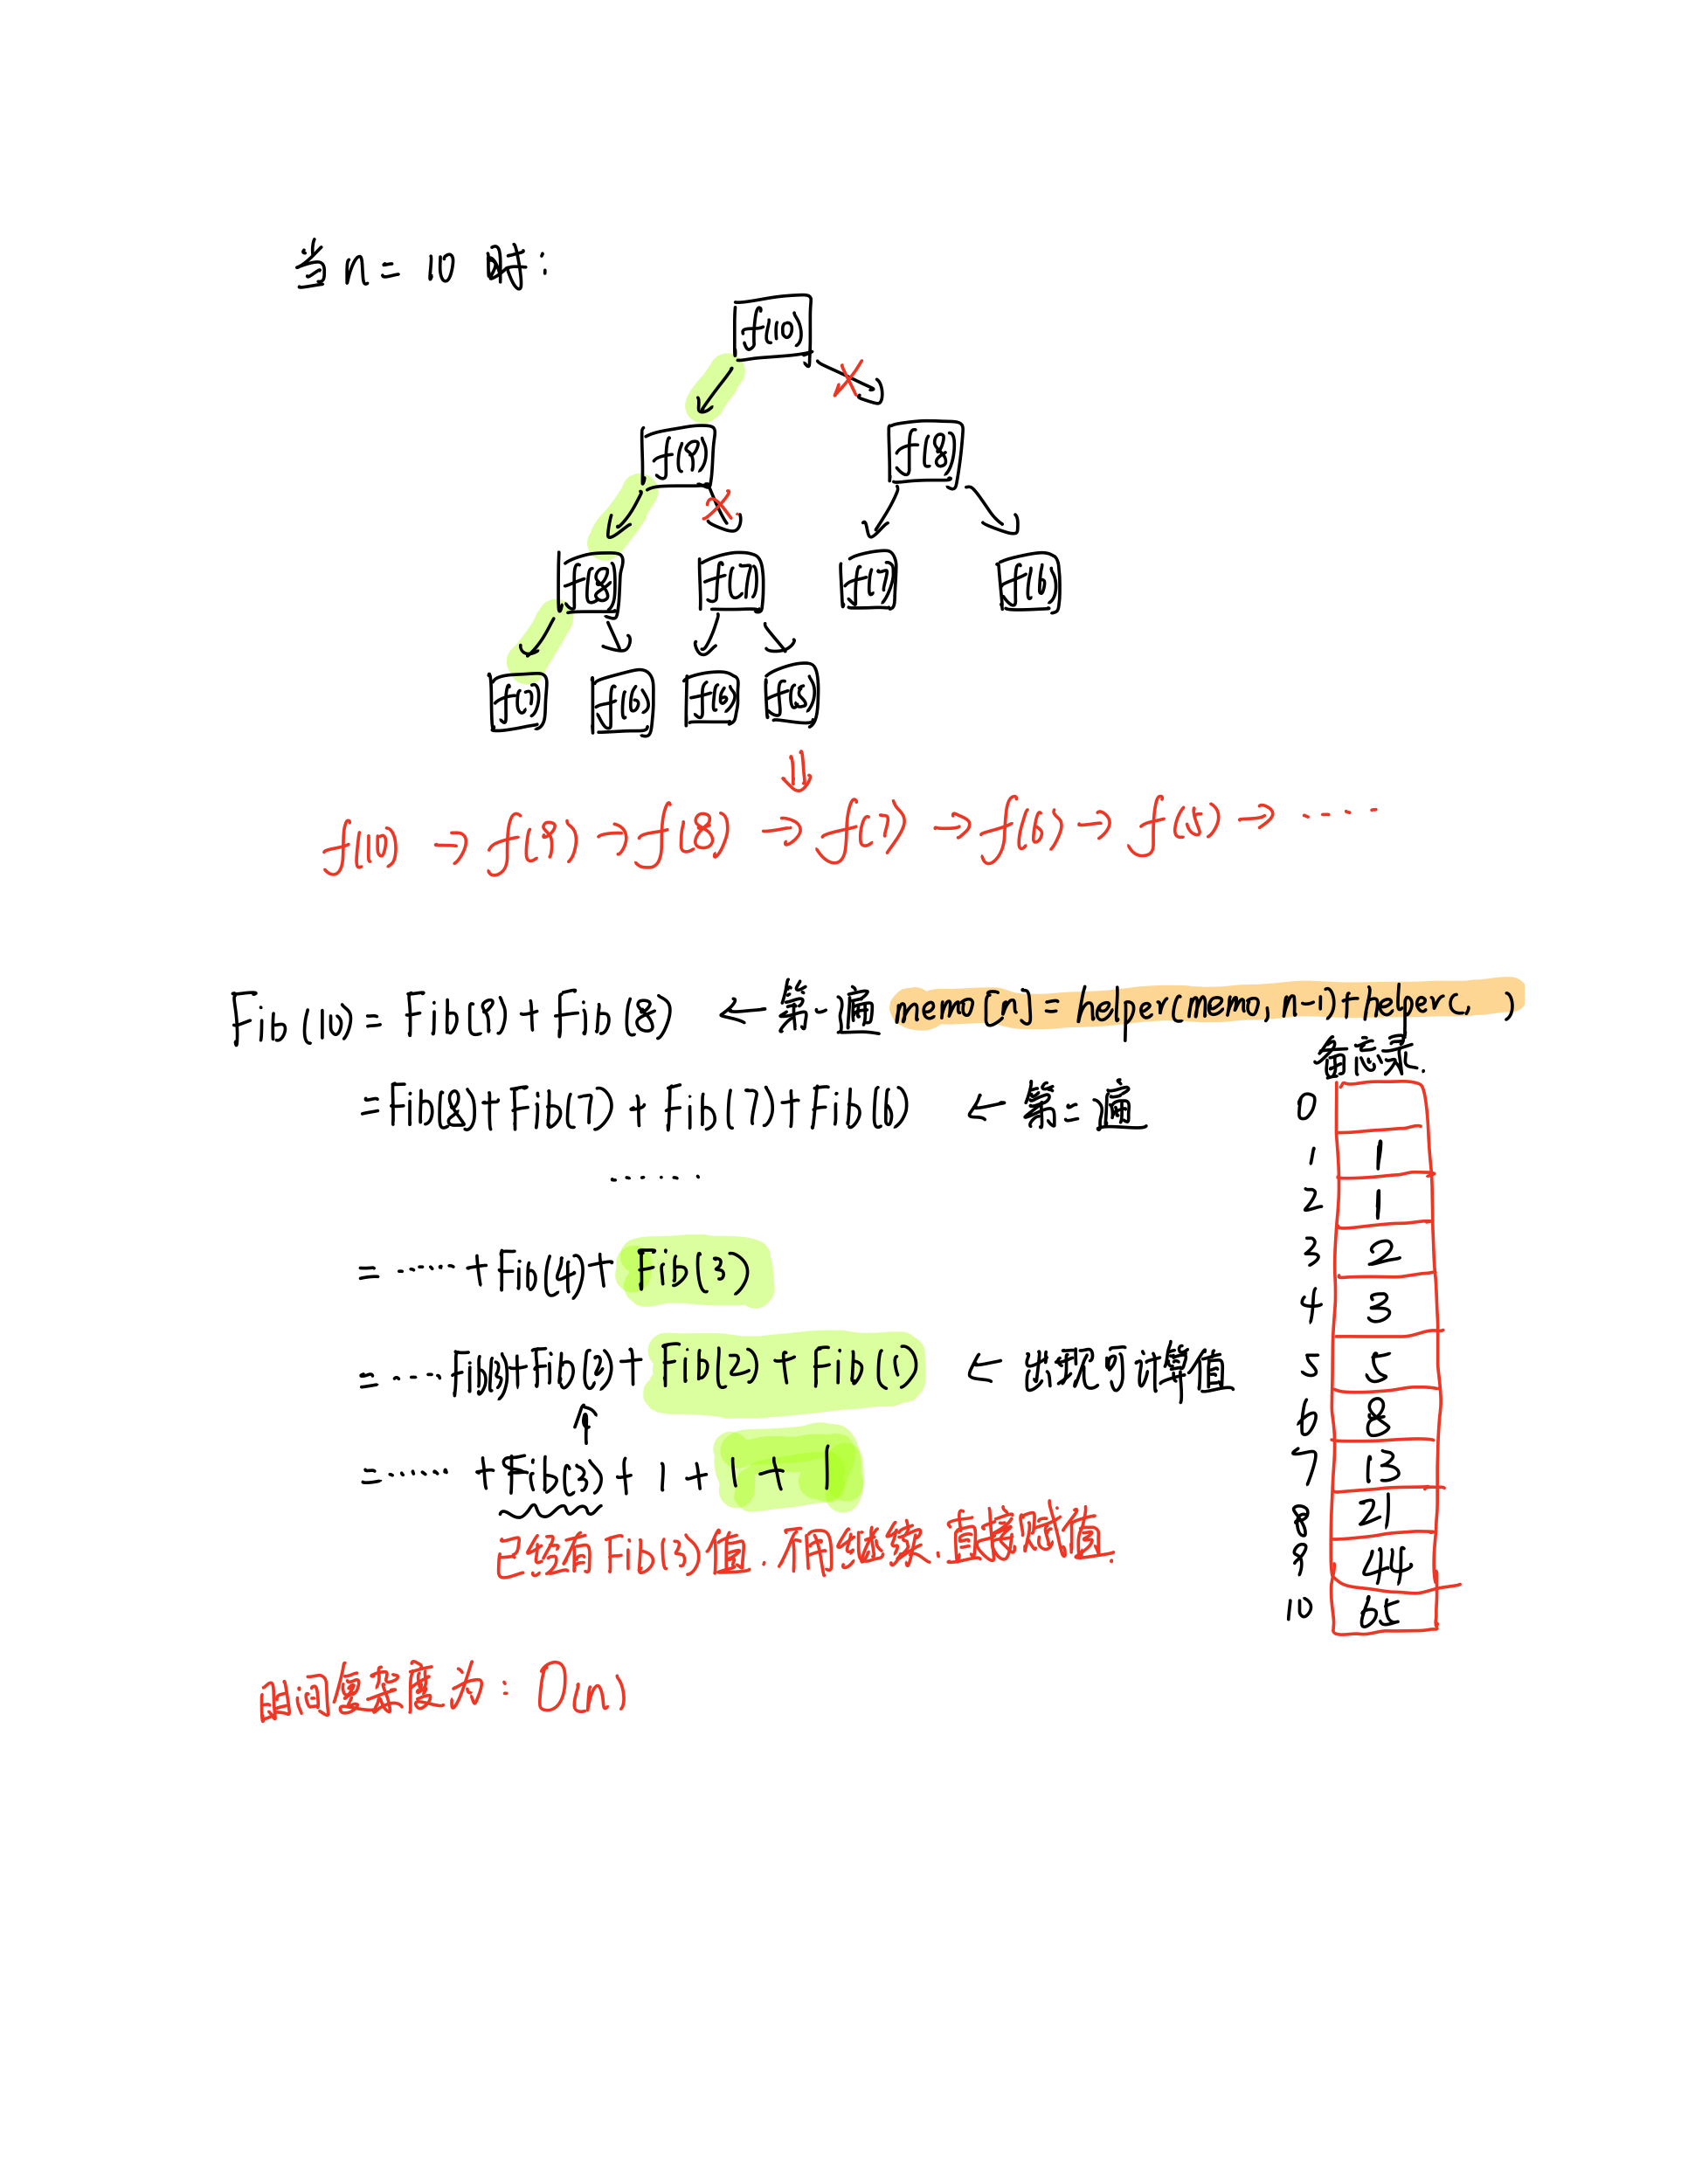 当n=10时:
f(10)
f(9) f(8)
f(8) f(7) f(7) f(6)
f(7) f(6) f(6) f(5)
⇓
f(10)→f(9)→f(8)→f(7)→f(6)→f(5)→……
Fib(10)=Fib(9)+Fib(8) ← 第一遍 memo[n]=helper(memo,n-1)+helper(, )
备忘录.
=Fib(8)+Fib(7)+Fib(7)+Fib(6) ← 第二遍
……
=……+Fib(4)+Fib(3)
=……Fib(3)+Fib(2)+Fib(2)+Fib(1) ← 出现可计算值
=……+Fib(3)+1+1+1
已经有Fib(3)值.不用继续.直接赋值.
0
1 1
2 1
3 2
4 3
5 5
6 8
7 13
8 21
9 44
10 65
时间复杂度为:O(n)